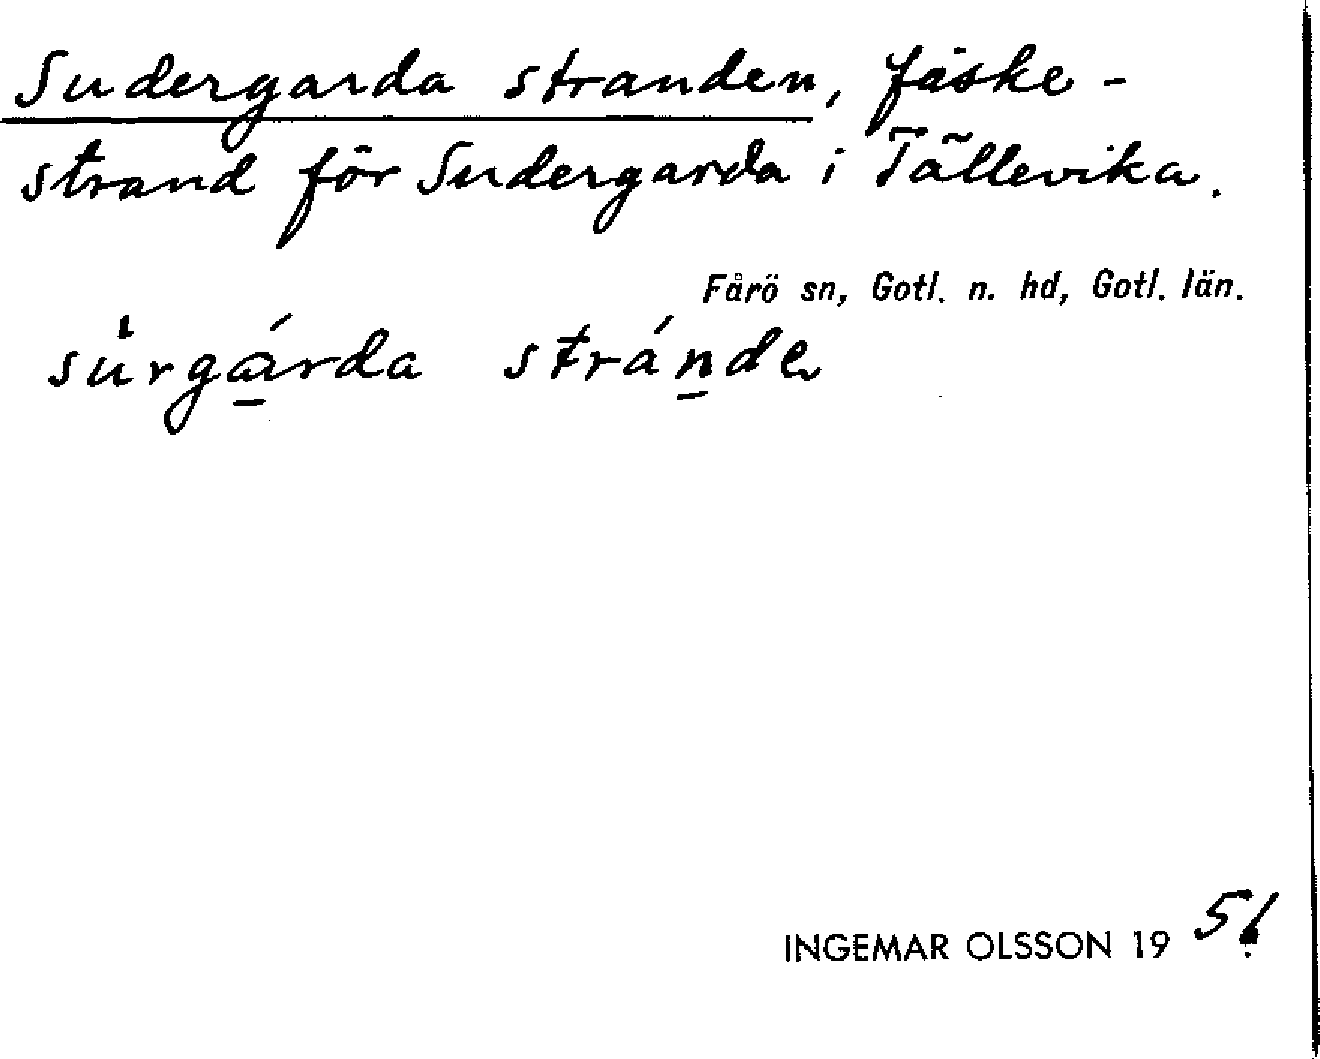 Sudergarda stranden, fäske-
strand för Sudergarda i Tällevika.
Fårö sn, Gotl. n. hd, Gotl. län.
su̇rgá̱rda stráṉde
INGEMAR OLSSON 19